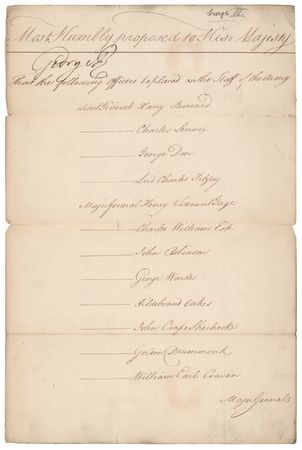 George III
Most Humbly proposed to His Majesty
George R
that the following officers be placed on the Staff of the Army
Lieut General Harry Burrard
Charles Lennox
George Don
Lord Charles Fitzroy
Major General Henry Viscount Gage
Charles William Este
John Robinson
George Warde
Hildebrand Oakes
John Coape Sherbrooke
Gordon Drummond
William Earl Craven
Major Generals